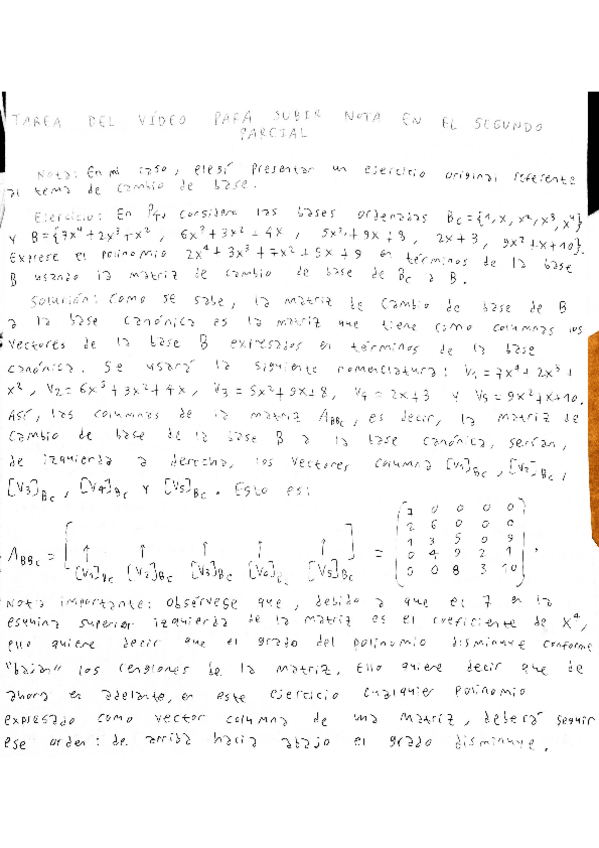 TAREA DEL VÍDEO PARA SUBIR NOTA EN EL SEGUNDO
PARCIAL
Nota: En mi caso, elegí presentar un ejercicio original referente
al tema de cambio de base.
Ejercicio: En P4, considere las bases ordenadas Bc = {1, x, x², x³, x⁴}
y B = {7x⁴ + 2x³ + x², 6x³ + 3x² + 4x, 5x² + 9x + 8, 2x + 3, 9x² + x + 10}.
Exprese el polinomio 2x⁴ + 3x³ + 7x² + 5x + 9 en términos de la base
B usando la matriz de cambio de base de Bc a B.
Solución: Como se sabe, la matriz de cambio de base de B
a la base canónica es la matriz que tiene como columnas los
vectores de la base B expresados en términos de la base
canónica. Se usará la siguiente nomenclatura: V1 = 7x⁴ + 2x³ +
x², V2 = 6x³ + 3x² + 4x, V3 = 5x² + 9x + 8, V4 = 2x + 3 y V5 = 9x² + x + 10.
Así, las columnas de la matriz ABBc, es decir, la matriz de
cambio de base de la base B a la base canónica, serían,
de izquierda a derecha, los vectores columna [V1]Bc, [V2]Bc,
[V3]Bc, [V4]Bc y [V5]Bc. Esto es:
7 0 0 0 0
2 6 0 0 0
1 3 5 0 9
ABBc = [ ↑ ↑ ↑ ↑ ↑ ] = 0 4 9 2 1 .
[V1]Bc [V2]Bc [V3]Bc [V4]Bc [V5]Bc 0 0 8 3 10
Nota importante: Obsérvese que, debido a que el 7 en la
esquina superior izquierda de la matriz es el coeficiente de x⁴,
ello quiere decir que el grado del polinomio disminuye conforme
"bajan" los renglones de la matriz. Ello quiere decir que de
ahora en adelante, en este ejercicio cualquier polinomio
expresado como vector columna de una matriz, deberá seguir
ese orden: de arriba hacia abajo el grado disminuye.